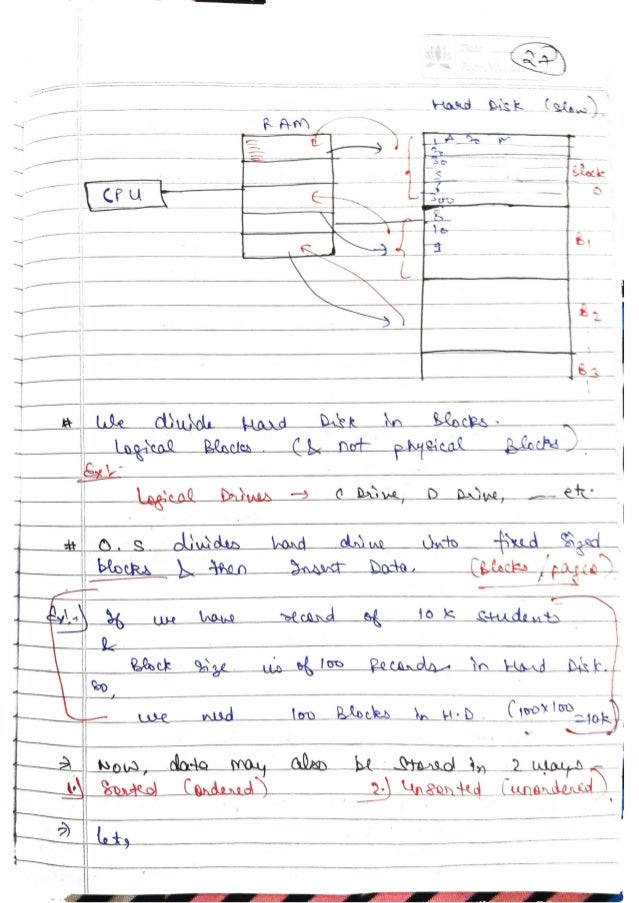 27
Hard Disk (slow).
RAM
CPU
1 A 20 M
20
30
5
6
300
Block
0
8
10
9
B1
B2
B3
# We divide Hard Disk in Blocks.
Logical Blocks. (& not physical Blocks)
Ex1:
Logical Drives → C Drive, D Drive, — etc.
# O.S. divides hard drive into fixed sized
blocks & then Insert Data. (Blocks/pages)
Ex:-) If we have record of 10k students
&
Block size is of 100 Records in Hard Disk.
so,
we need 100 Blocks in H.D. (100x100
=10k)
⇒ Now, data may also be stored in 2 ways -
1.) Sorted (ordered) 2.) Unsorted (unordered)
⇒ let,